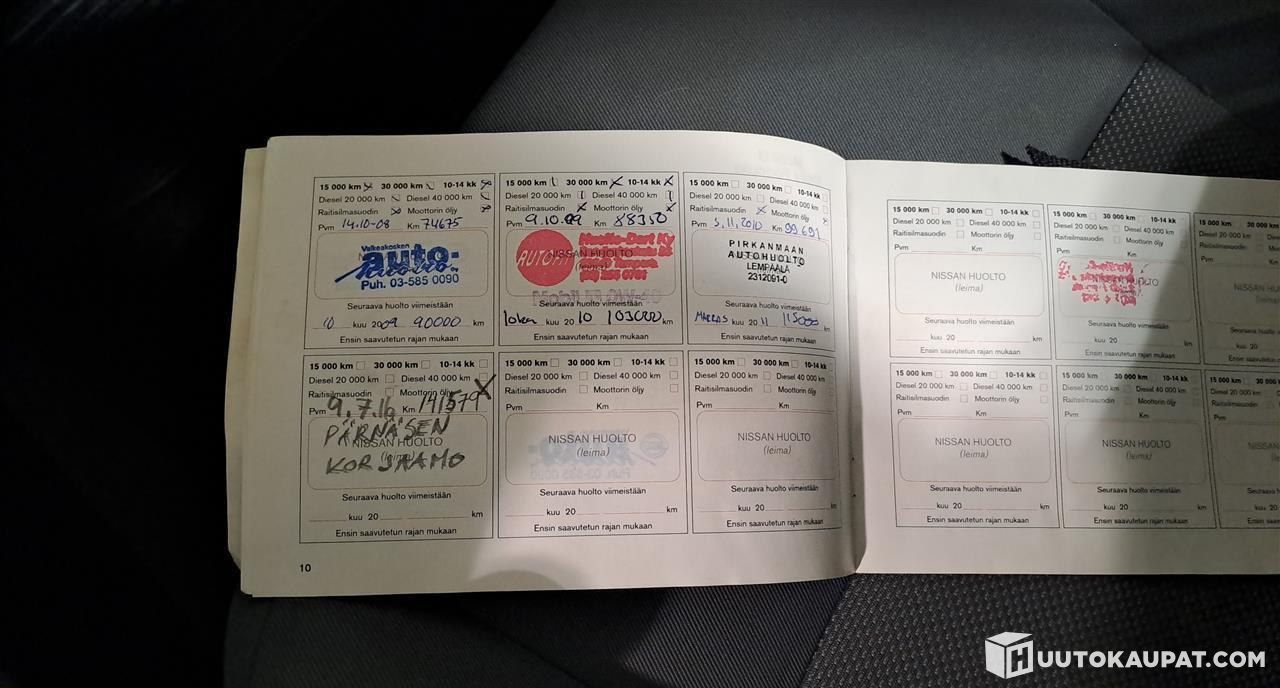 15 000 km 30 000 km 10-14 kk
Diesel 20 000 km Diesel 40 000 km
Raitisilmasuodin Moottorin öljy
Pvm 14.10-08 Km 74675
Valkeakosken
auto-
Puh. 03-585 0090
Seuraava huolto viimeistään
10 kuu 2009 90000 km
Ensin saavutetun rajan mukaan
15 000 km 30 000 km 10-14 kk
Diesel 20 000 km Diesel 40 000 km
Raitisilmasuodin Moottorin öljy
Pvm 9.10.09 Km 88350
NISSAN HUOLTO
(leima)
Seuraava huolto viimeistään
loka kuu 2010 103000 km
Ensin saavutetun rajan mukaan
15 000 km 30 000 km 10-14 kk
Diesel 20 000 km Diesel 40 000 km
Raitisilmasuodin Moottorin öljy
Pvm 5.11.2010 Km 99691
PIRKANMAAN
AUTOHUOLTO
LEMPÄÄLÄ
2312091-0
Seuraava huolto viimeistään
MARRAS kuu 2011 115000 km
Ensin saavutetun rajan mukaan
15 000 km 30 000 km 10-14 kk
Diesel 20 000 km Diesel 40 000 km
Raitisilmasuodin Moottorin öljy
Pvm 9.7.16 Km 141579
PÄRNÄSEN
NISSAN HUOLTO
(leima)
KORJAAMO
Seuraava huolto viimeistään
kuu 20 km
Ensin saavutetun rajan mukaan
15 000 km 30 000 km 10-14 kk
Diesel 20 000 km Diesel 40 000 km
Raitisilmasuodin Moottorin öljy
Pvm Km
NISSAN HUOLTO
(leima)
Seuraava huolto viimeistään
kuu 20 km
Ensin saavutetun rajan mukaan
15 000 km 30 000 km 10-14 kk
Diesel 20 000 km Diesel 40 000 km
Raitisilmasuodin Moottorin öljy
Pvm Km
NISSAN HUOLTO
(leima)
Seuraava huolto viimeistään
kuu 20 km
Ensin saavutetun rajan mukaan
10
15 000 km 30 000 km 10-14 kk
Diesel 20 000 km Diesel 40 000 km
Raitisilmasuodin Moottorin öljy
Pvm Km
NISSAN HUOLTO
(leima)
Seuraava huolto viimeistään
kuu 20 km
Ensin saavutetun rajan mukaan
15 000 km 30 000 km 10-14 kk
Diesel 20 000 km Diesel 40 000 km
Raitisilmasuodin Moottorin öljy
Pvm Km
HUOLTO
Seuraava huolto viimeistään
kuu 20 km
Ensin saavutetun rajan mukaan
15 000 km 30 000
Diesel 20 000 km
Raitisilmasuodin
Pvm
NISSAN
Seuraava huolto
kuu 20
Ensin saavutetun
15 000 km 30 000 km 10-14 kk
Diesel 20 000 km Diesel 40 000 km
Raitisilmasuodin Moottorin öljy
Pvm Km
NISSAN HUOLTO
(leima)
Seuraava huolto viimeistään
kuu 20 km
Ensin saavutetun rajan mukaan
15 000 km 30 000 km 10-14 kk
Diesel 20 000 km Diesel 40 000 km
Raitisilmasuodin Moottorin öljy
Pvm Km
NISSAN HUOLTO
(leima)
Seuraava huolto viimeistään
kuu 20 km
Ensin saavutetun rajan mukaan
15 000 km 30 000
Diesel 20 000 km
Raitisilmasuodin
Pvm
NISSAN
Seuraava huolto
kuu 20
Ensin saavutetun
HUUTOKAUPAT.COM